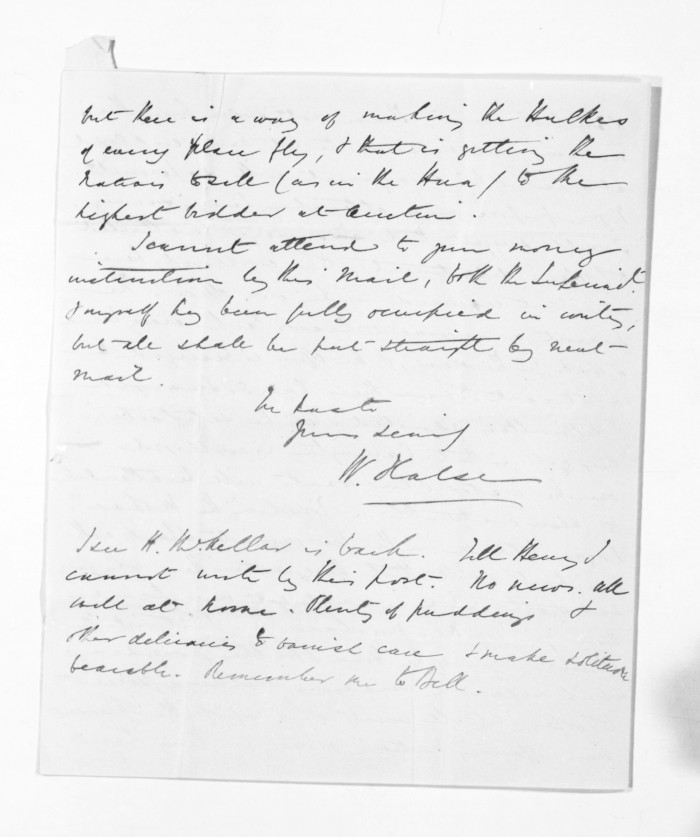 but there is a way of making the Hulkes
of every place fly, & that is getting the
Natives to sell (as in the Hua) to the
highest bidder at auction.
I cannot attend to your money
instructions by this mail, both the Superind.t
& myself hvg been fully occupied in writg,
but all shall be put straight by next
mail.
In haste
Yours sincly
W. Halse
I see H. McKellar is back. Tell Henry I
cannot write by this post. No news. all
well at home. Plenty of puddings &
other delicacies to banish care & make solitude
bearable. Remember me to Bell.